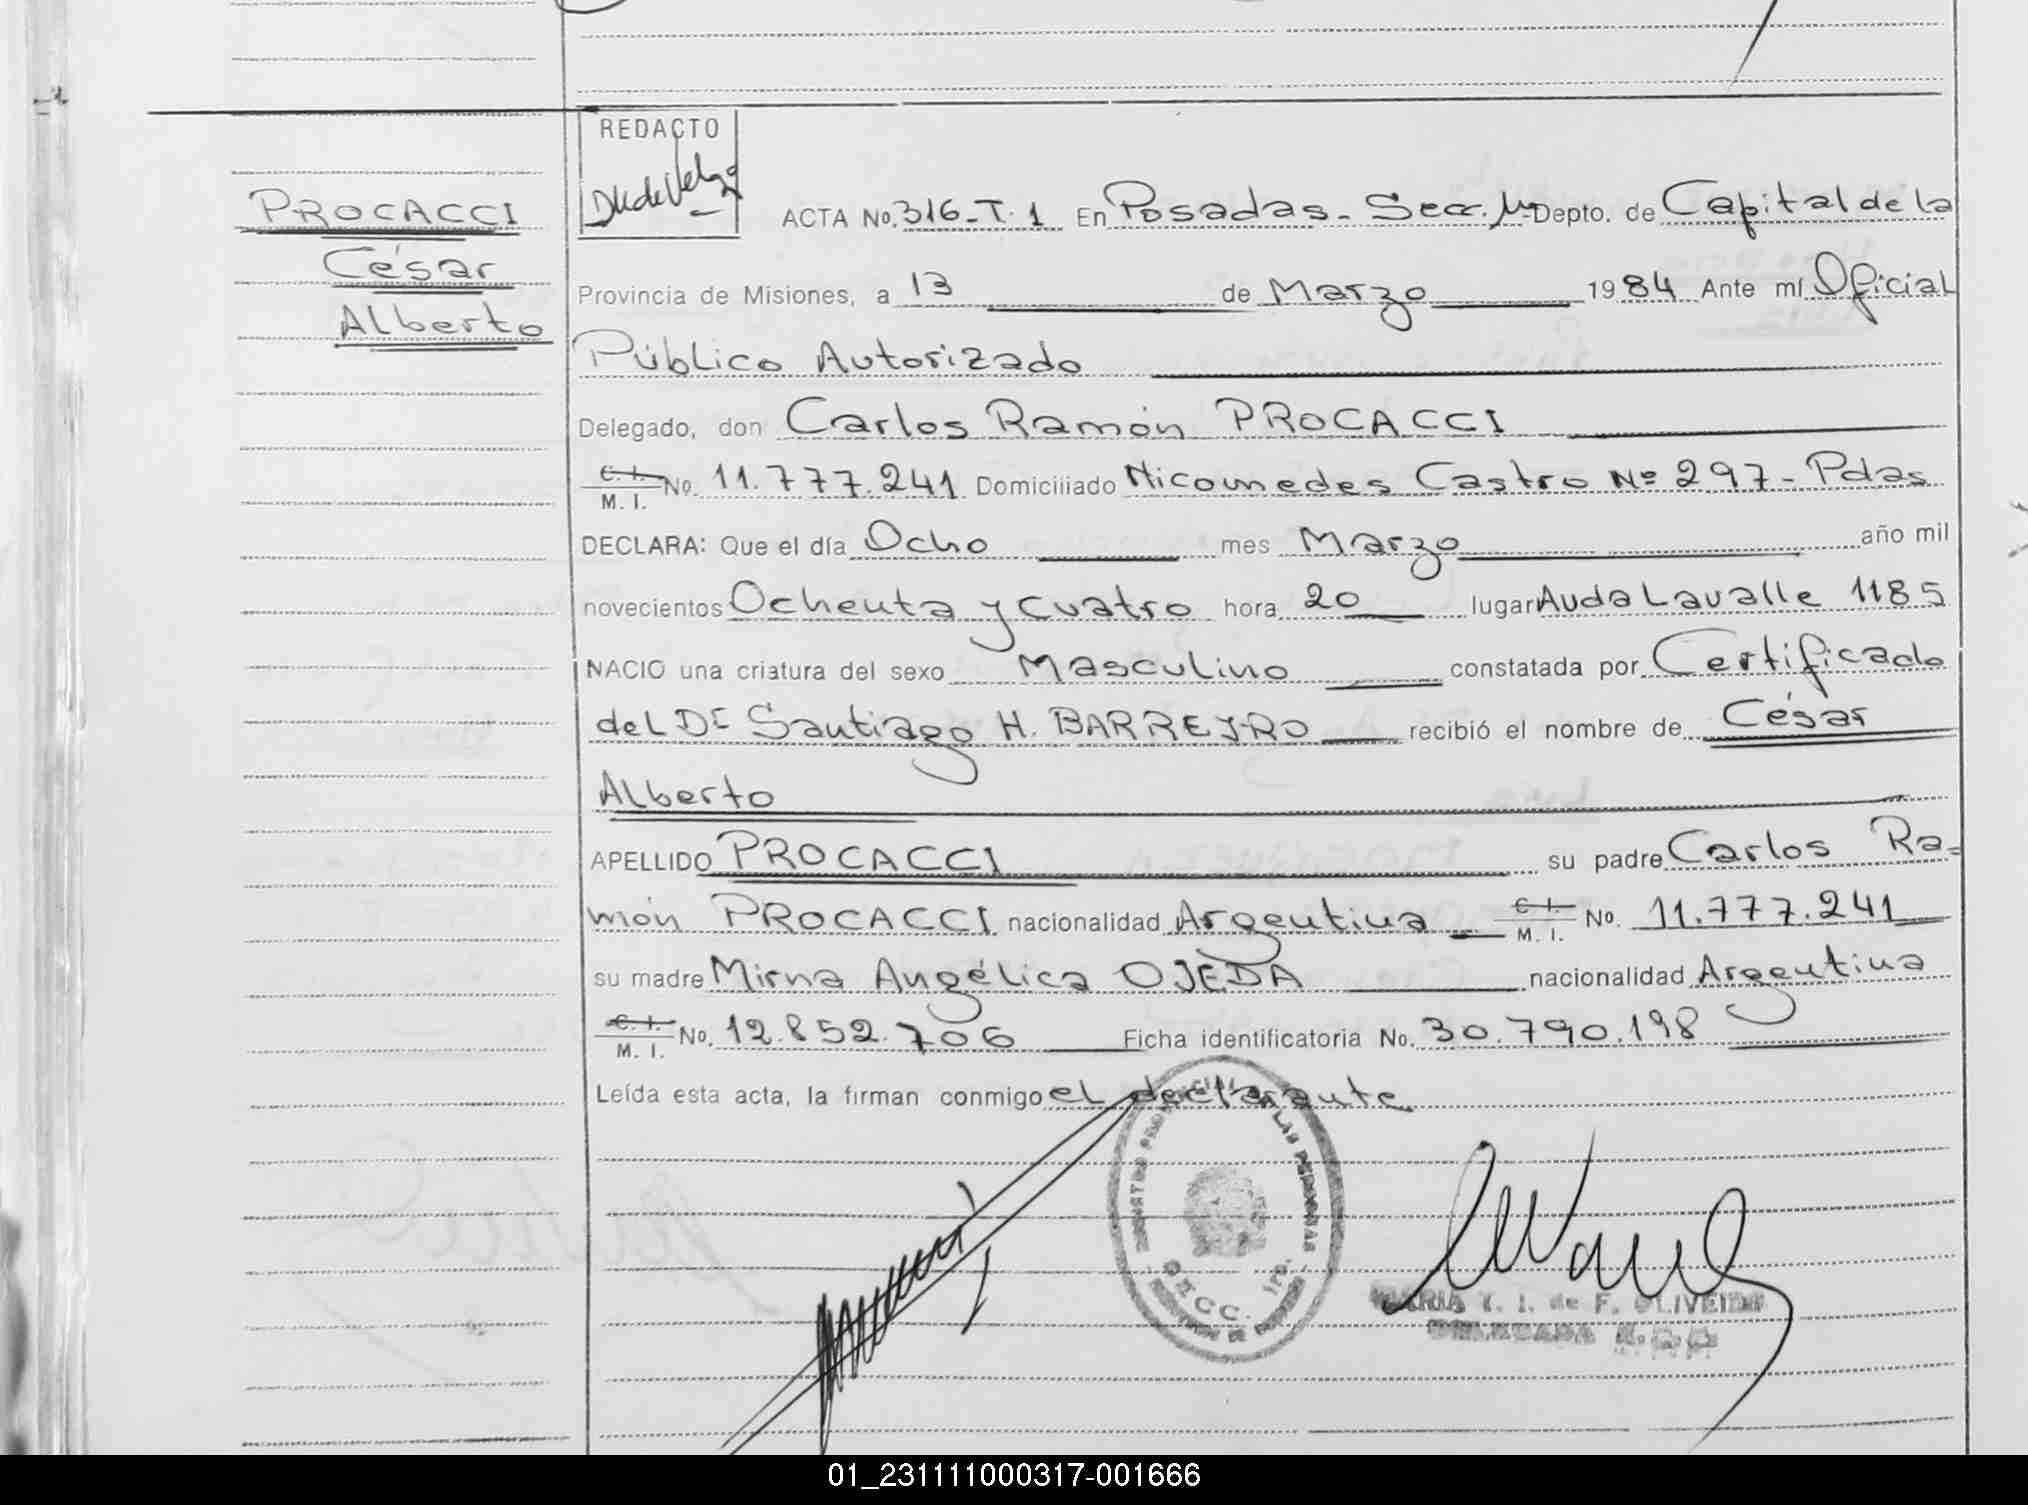 REDACTO
PROCACCI
César
Alberto
ACTA No. 316-T.1 En Posadas - Secc. Depto. de Capital de la
Provincia de Misiones, a 13 de Marzo 1984 Ante mí Oficial
Público Autorizado
Delegado, don Carlos Ramón PROCACCI
C. I.
M. I. No. 11.777.241 Domiciliado Nicomedes Castro Nº 297 - Pdas
DECLARA: Que el día Ocho mes Marzo año mil
novecientos Ochenta y Cuatro hora 20 lugar Avda Lavalle 1185
NACIO una criatura del sexo Masculino constatada por Certificado
del Dr Santiago H. BARREYRO recibió el nombre de César
Alberto
APELLIDO PROCACCI su padre Carlos Ra-
món PROCACCI nacionalidad Argentina C. I.
M. I. No. 11.777.241
su madre Mirna Angélica OJEDA nacionalidad Argentina
C. I.
M. I. No. 12.852.706 Ficha identificatoria No. 30.790.198
Leída esta acta, la firman conmigo el declarante
LAS PERSONAS
MARIA Y. I. de F. OLIVEIRA
DELEGADA
01_231111000317-001666